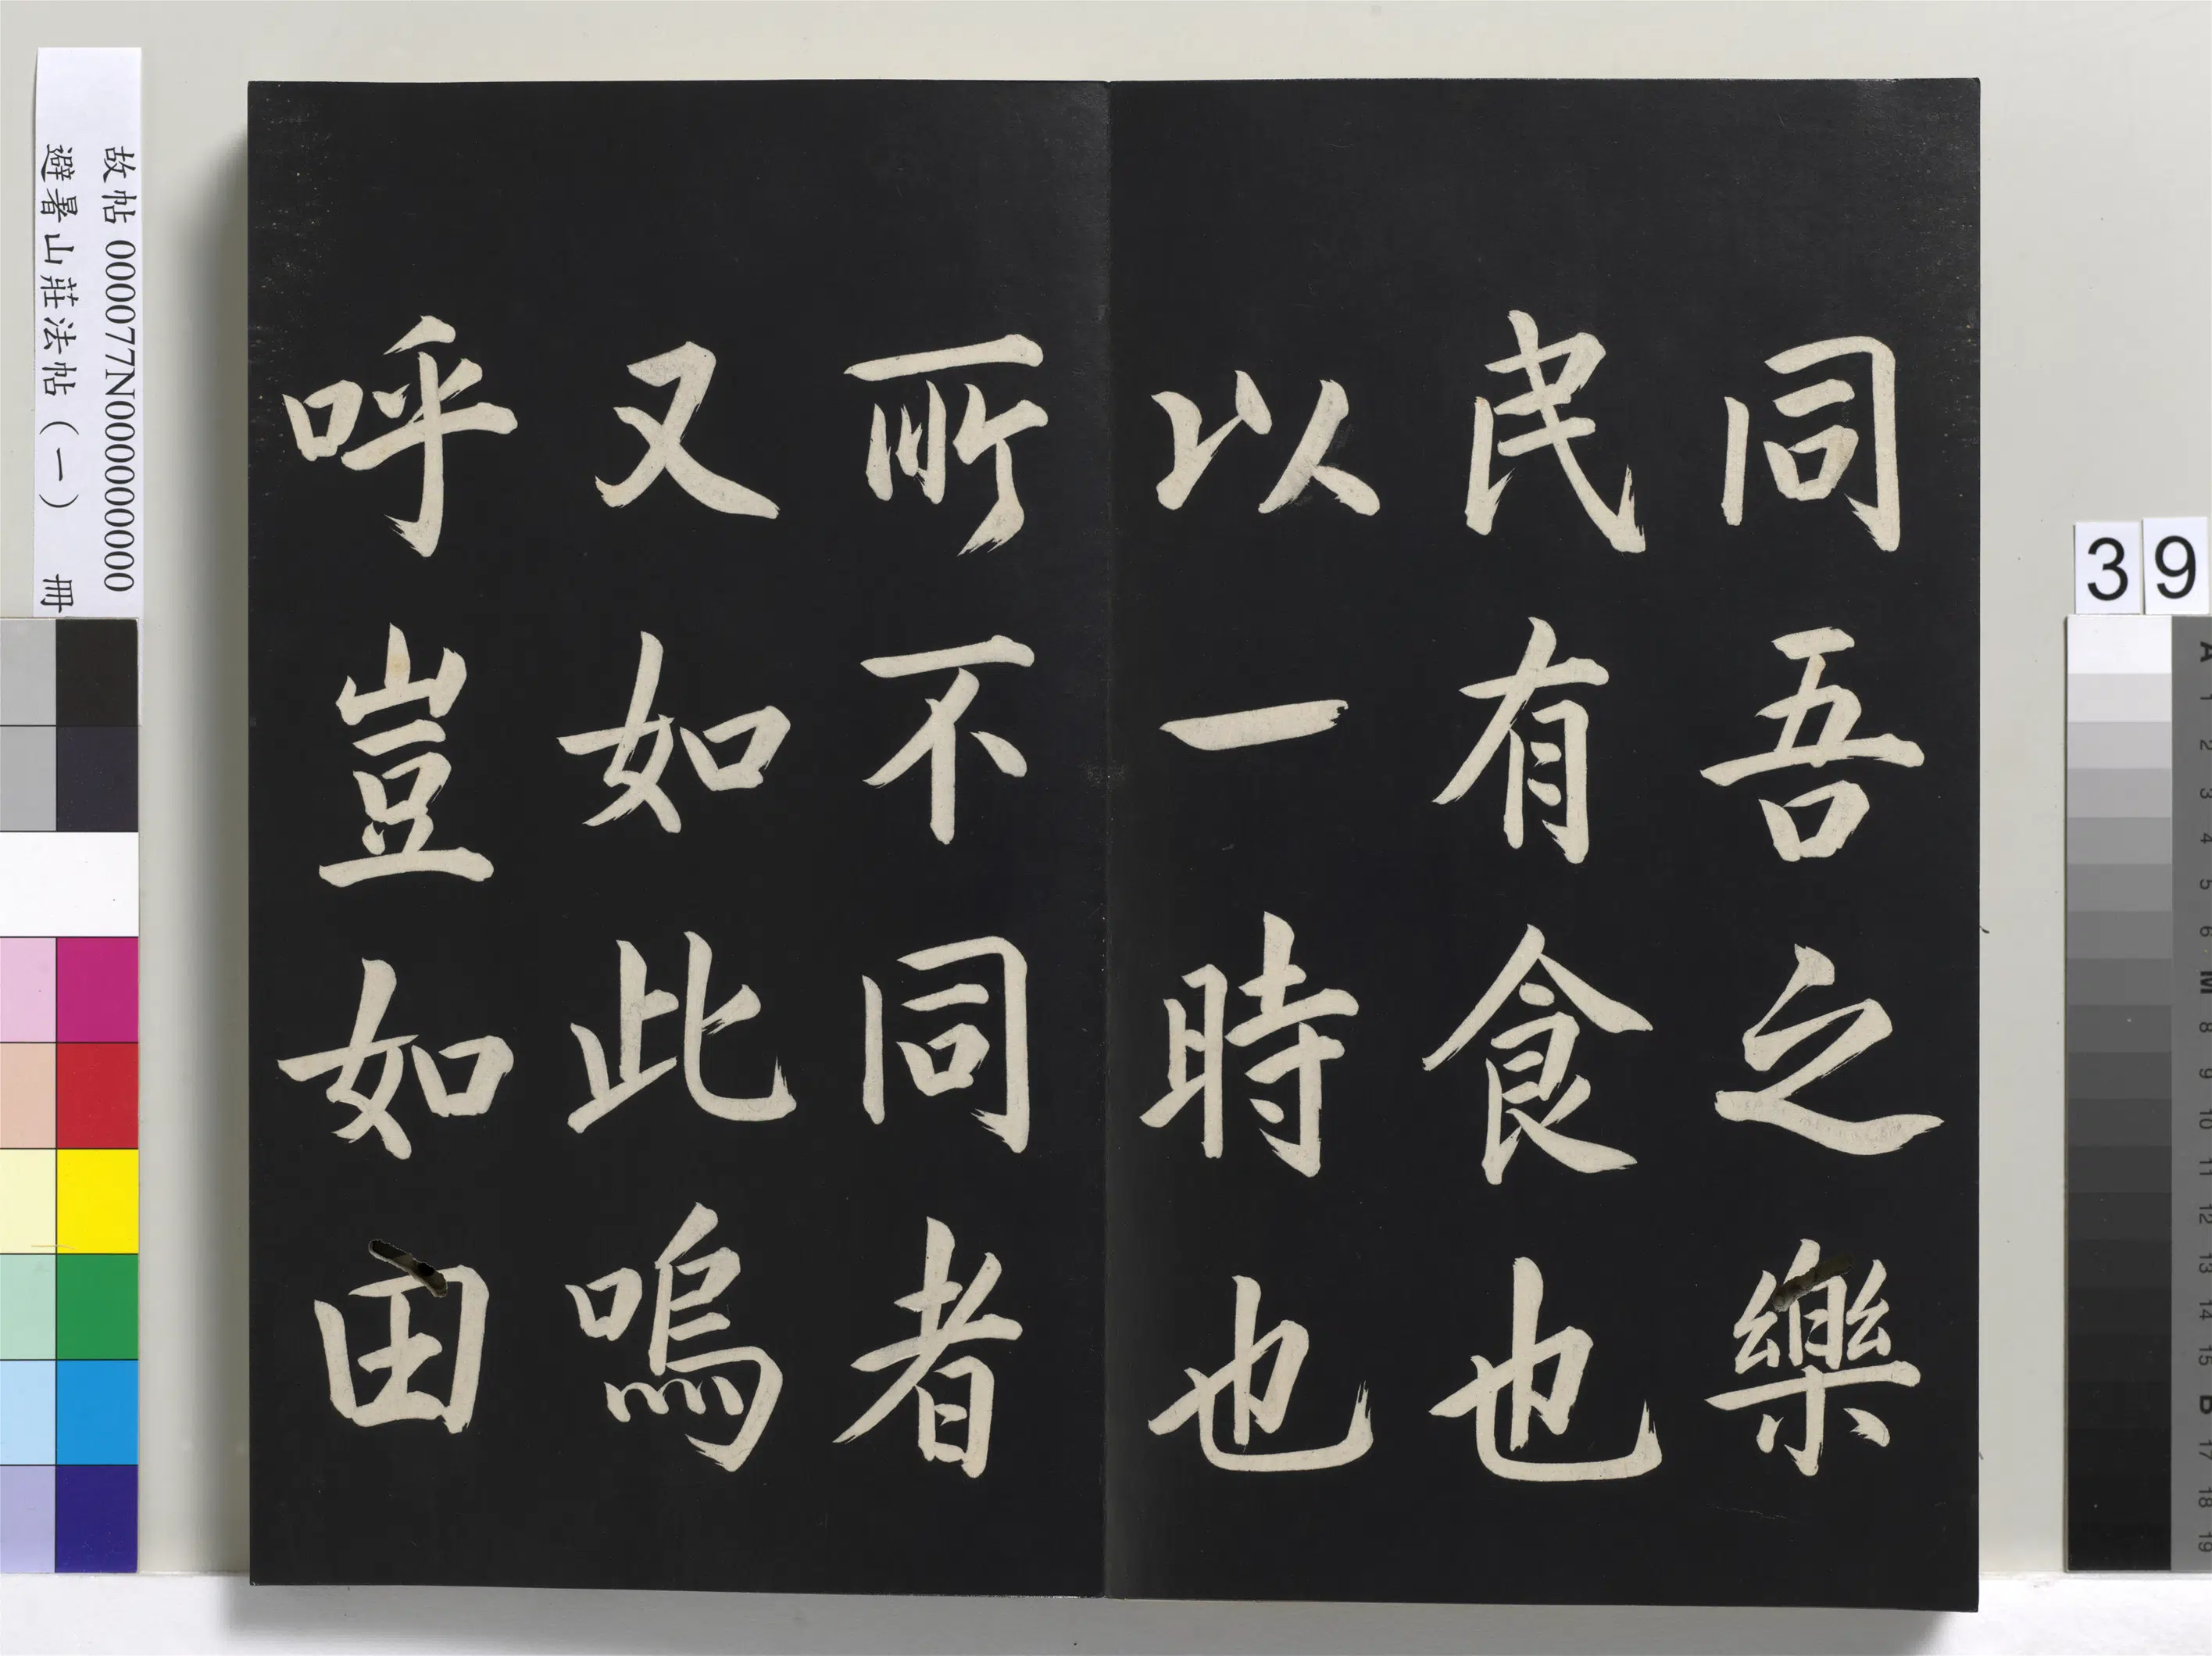 同吾之樂
民有食也
以一時也
所不同者
又如此嗚
呼豈如田
故帖 000077N000000000
避暑山莊法帖（一） 冊
39
A
1
2
3
4
5
6
M
8
9
10
11
12
13
14
15
B
17
18
19